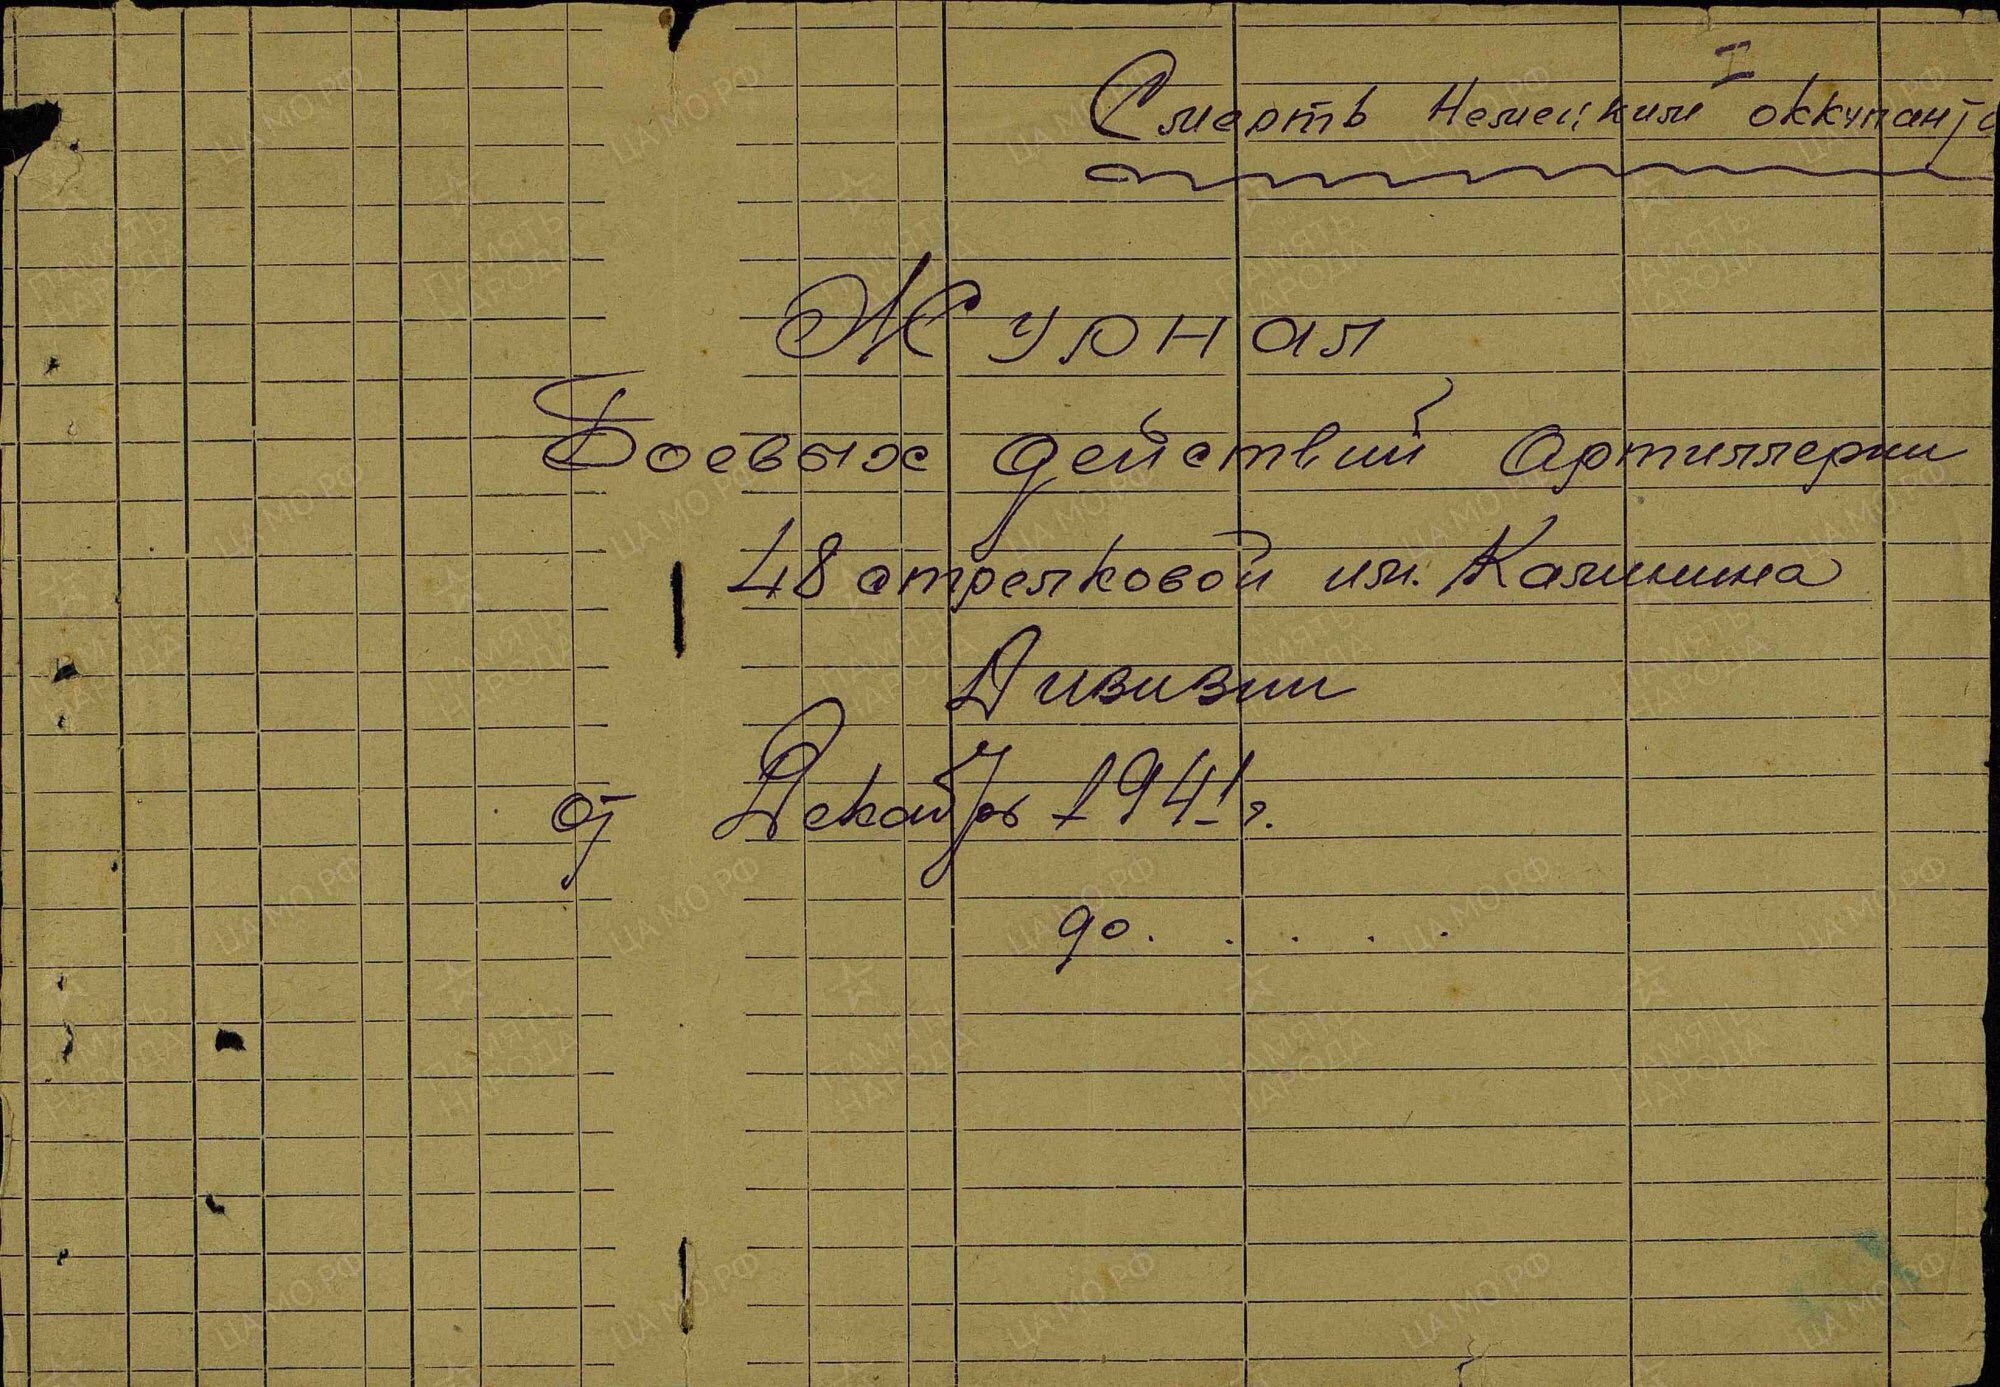 I
Смерть Немецким оккупант
Журнал
Боевых действий Артиллерии
48 стрелковой им. Калинина
Дивизии
от Декабрь 1941 г.
до. . . . .
ЦА МО РФ
ПАМЯТЬ НАРОДА